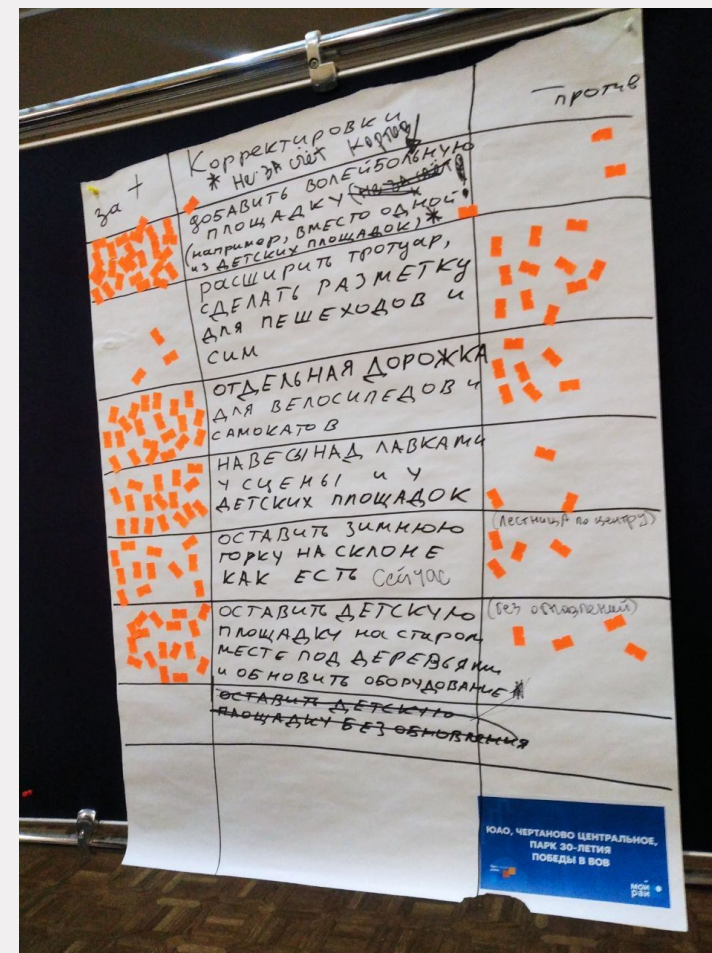 за +
Корректировки
* не за счёт корта
— против
добавить волейбольную
площадку (не за счёт)!
(например, вместо одной
из детских площадок) *
расширить тротуар,
сделать разметку
для пешеходов и
сим
отдельная дорожка
для велосипедов и
самокатов
навесы над лавками
у сцены и у
детских площадок
оставить зимнюю
горку на склоне
как есть сейчас
(лестница по центру)
оставить детскую
площадку на старом
месте под деревьями
и обновить оборудование *
(без обновлений)
оставить детскую
площадку без обновления
ЮАО, ЧЕРТАНОВО ЦЕНТРАЛЬНОЕ,
ПАРК 30-ЛЕТИЯ
ПОБЕДЫ В ВОВ
мой